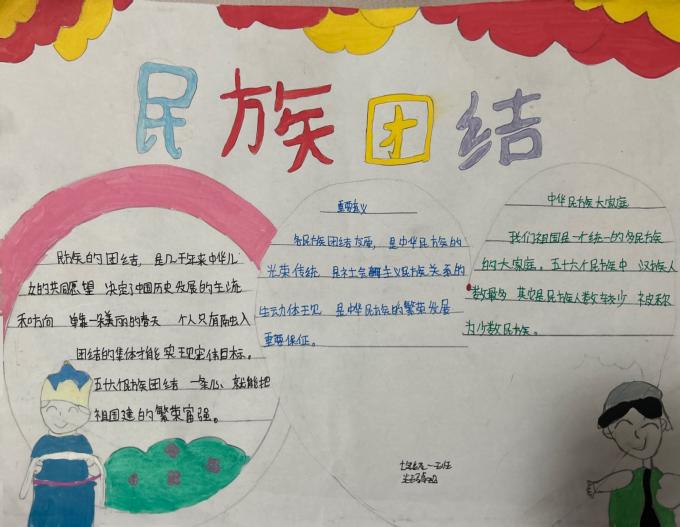 民族团结
民族的团结，是几千年来中华儿
女的共同愿望 决定了中国历史发展的主流
和方向 单靠一朵美丽的春天 个人只有融入
团结的集体才能实现定体目标。
五十六个民族团结 一条心、就能把
祖国建的繁荣富强。
重要意义
各民族团结友原，是中华民族的
光荣传统 是社会主义民族关系的
生动体现 是中华民族的繁荣发展
重要保证。
中华民族大家庭
我们祖国是一个统一的多民族
的大家庭。五十六个民族中 汉族人
数最多 其它民族人数较少 被称
为少数民族。
七年级一班